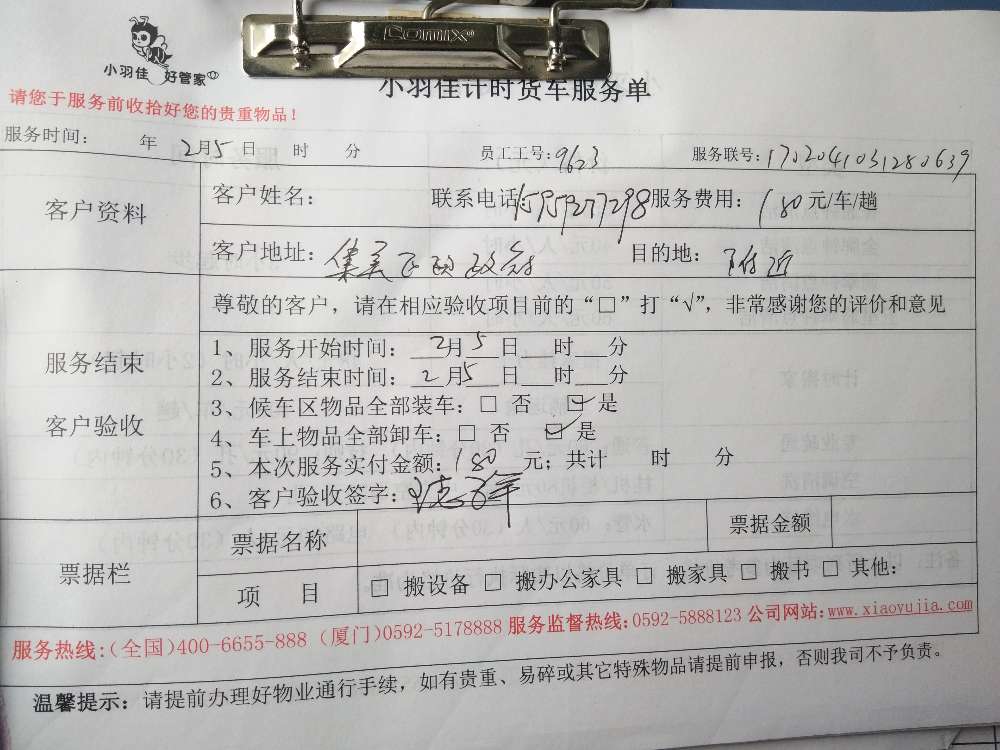 Comix
小羽佳 好管家
小羽佳计时货车服务单
请您于服务前收拾好您的贵重物品！
服务时间： 年 2月5日 时 分 员工工号：9623 服务联号：1702041031280639
客户资料
客户姓名： 联系电话：15959277298 服务费用：180元/车/趟
客户地址：集美区政府 目的地：附近
尊敬的客户，请在相应验收项目前的“□”打“√”，非常感谢您的评价和意见
服务结束
客户验收
1、服务开始时间：2月5日 时 分
2、服务结束时间：2月5日 时 分
3、候车区物品全部装车：□ 否 ☑ 是
4、车上物品全部卸车：□ 否 ☑ 是
5、本次服务实付金额：180 元；共计 时 分
6、客户验收签字：
票据栏
票据名称 票据金额
项 目 □ 搬设备 □ 搬办公家具 □ 搬家具 □ 搬书 □ 其他：
服务热线：（全国）400-6655-888 （厦门）0592-5178888 服务监督热线：0592-5888123 公司网站：www.xiaoyujia.com
温馨提示：请提前办理好物业通行手续，如有贵重、易碎或其它特殊物品请提前申报，否则我司不予负责。